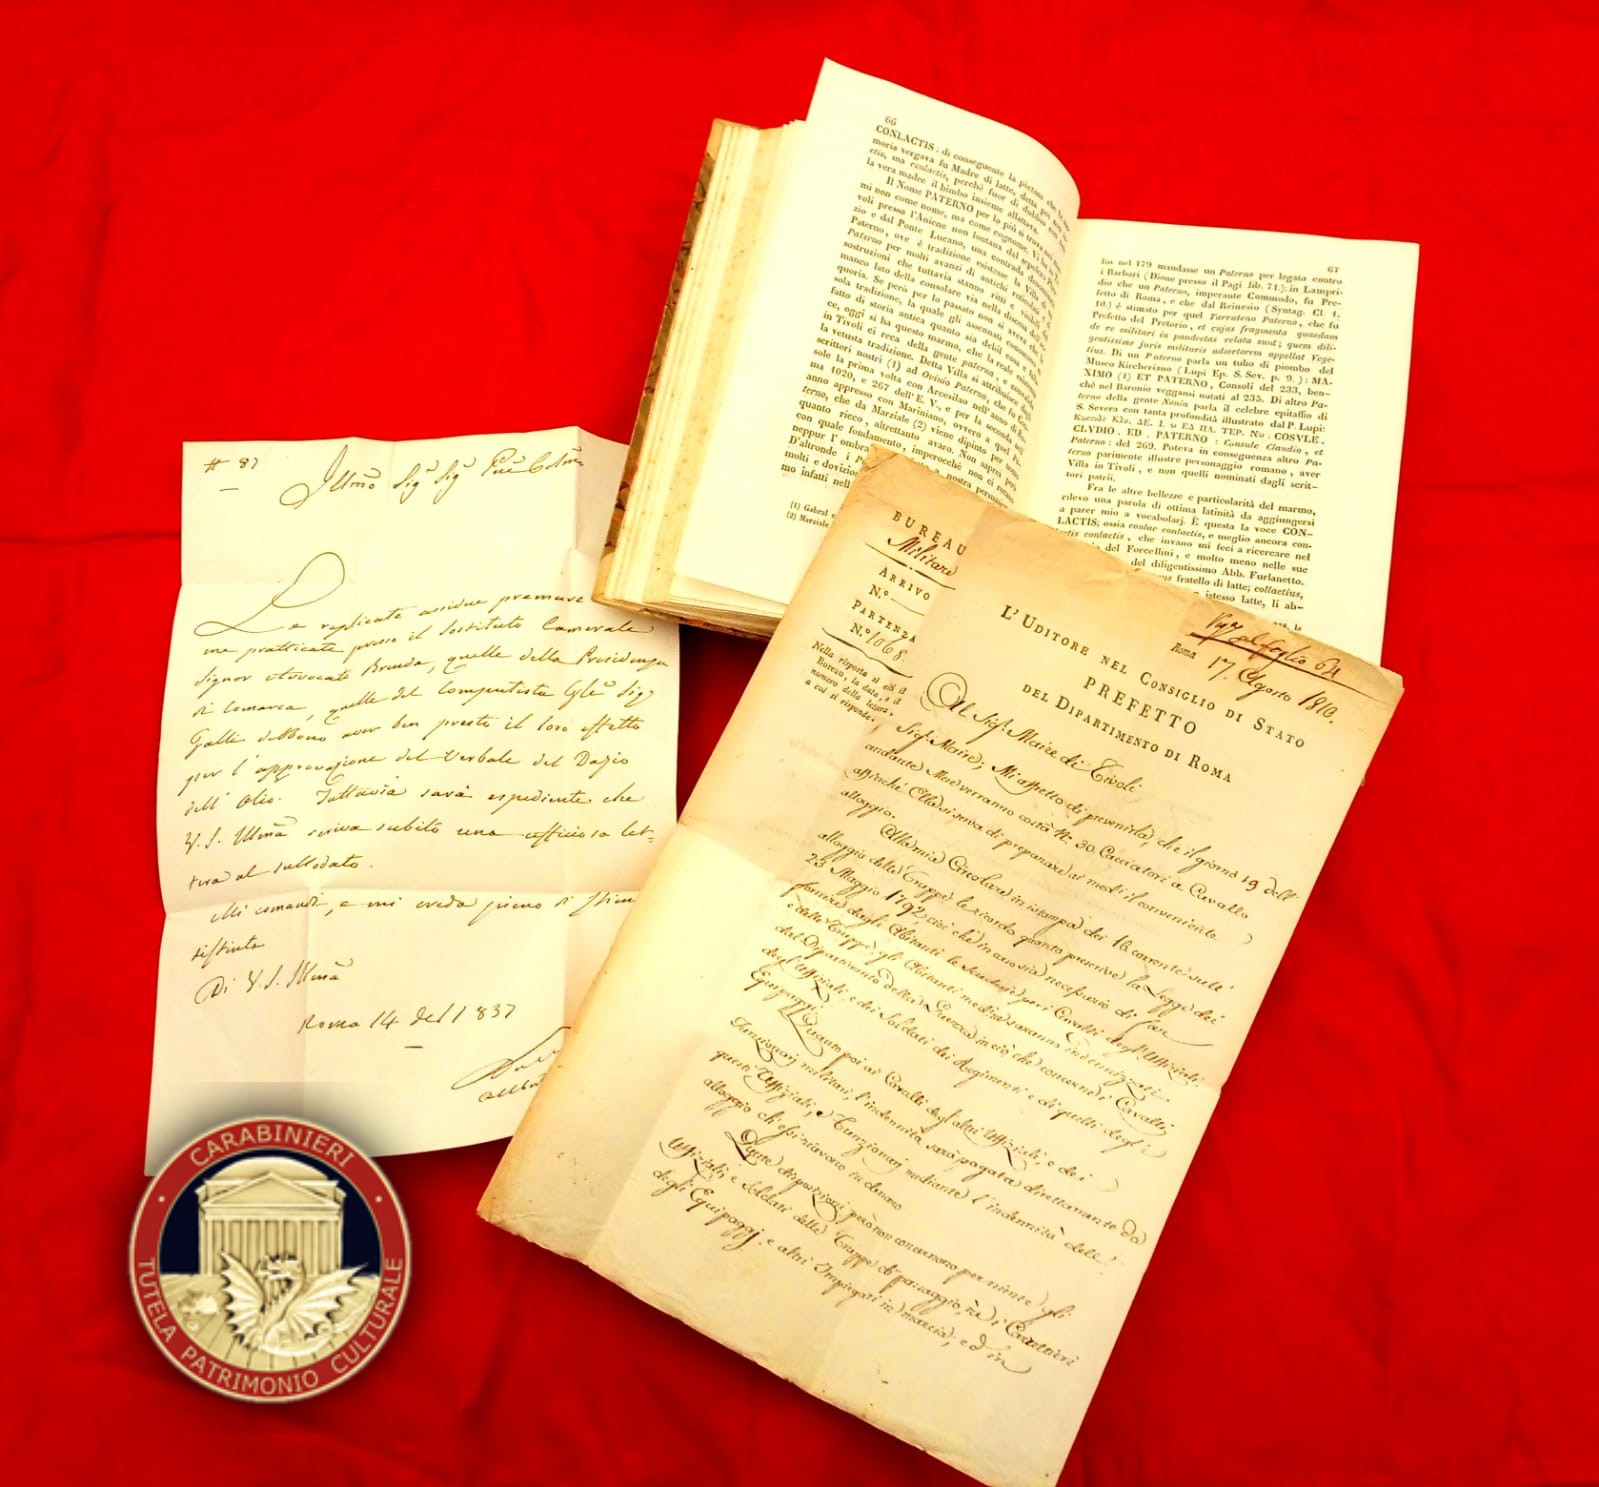 66
CONLACTIS: di conseguente la pietosa
moria vergava fu Madre di latte, detta
ctis, ma conlactis, perchè fuor di dubbio
la vera madre il bimbo insieme allattava.
Il Nome PATERNO per lo più si trova
mi non come nome, ma come cognome.
voli presso l'Aniene non lontana dal sepolcro
zio e dal Ponte Lucano, una contrada
Paterno, ove è tradizione esistesse la Villa
Paterno per molti avanzi di antichi
sostruzioni che tuttavia stanno ritti
manco lato della consolare via nella discesa
quoria. Se però per lo passato non si aveva che
sola tradizione, la quale gli assennati
fatto di storia antica quanto sia debil
ce, oggi si ha questo marmo, che la reale
la vetusta tradizione. Detta Villa si attribuisce
in Tivoli ci reca della gente paterna, e
scrittori nostri (1) ad Ovinio Paterno, che fu
sole la prima volta con Arcesilao nell'anno di
ma 1020, e 267 dell'E. V., e per la seconda
anno appresso con Mariniano, ovvero a quel
terno, che da Marziale (2) viene dipinto per
quanto ricco, altrettanto avaro. Non saprei
con quale fondamento, imperocchè non ci recano
neppur l'ombra
D'altronde i
molti e dovizio
mo infatti nell
nostra persuas
(1) Gabral
(2) Marziale
67
fin nel 179 mandasse un Paterno per legato contro
i Barbari (Dione presso il Pagi lib. 71.): in Lampri-
dio che un Paterno, imperante Commodo, fu Pre-
fetto di Roma, e che dal Reinesio (Syntag. Cl. 1.
10.) è stimato per quel Tarruteno Paterno, che fu
Prefetto del Pretorio, et cujus fragmenta quaedam
de re militari in pandectas relata sunt; quem dili-
gentissime juris militaris adsertorem appellat Vege-
tius. Di un Paterno parla un tubo di piombo del
Museo Kircheriano (Lupi Ep. S. Sev. p. 9.): MA-
XIMO (1) ET PATERNO, Consoli del 233, ben-
chè nel Baronio veggansi notati al 235. Di altro Pa-
terno della gente Nonia parla il celebre epitaffio di
S. Severa con tanta profondità illustrato dal P. Lupi:
COSVLE.
CLVDIO. ED. PATERNO: Consule Claudio, et
Paterno: del 269. Poteva in conseguenza altro Pa-
terno parimente illustre personaggio romano, aver
Villa in Tivoli, e non quelli nominati dagli scrit-
tori patrii.
Fra le altre bellezze e particolarità del marmo,
rilevo una parola di ottima latinità da aggiungersi
a parer mio a vocabolarj. È questa la voce CON-
LACTIS; ossia conlac conlactis, e meglio ancora con-
lactis contactis, che invano mi feci a ricercare nel
del Forcellini, e molto meno nelle sue
del diligentissimo Abb. Furlanetto.
fratello di latte; collactius,
istesso latte, li ab-
# 87
Illmo Sig Sig
Le replicate assidue premure
me pratticate presso il Sostituto Camerale
Signor Avvocato Brenda, quelle della Presidenza
di Comarca, quelle del Computista Sig
Galli debbono aver ben presto il loro effetto
per l'approvazione del Verbale del Dazio
dell'Olio. Tuttavia sarà espediente che
V. S. Illma scriva subito una officiosa let-
tera al sullodato.
Mi comandi, e mi creda pieno di stima
distinta
Di V. S. Illma
Roma 14 1837
BUREAU
Militare
ARRIVO
N.º
PARTENZA
N.º 1068.
Nella risposta si citi il
Bureau, la data, e il
numero della lettera,
a cui si risponde.
L'UDITORE NEL CONSIGLIO DI STATO
PREFETTO
DEL DIPARTIMENTO DI ROMA
Roma 17. Agosto 1810.
Al Sigr. Maire di Tivoli
Sigr. Maire; Mi affretto di prevenirla, che il giorno 19 dell'
andante Mese verranno costà N. 30 Cacciatori a Cavallo
affinchè Ella si serva di preparare ai medi. il conveniente
alloggio.
Alla mia Circolare in istampa dei 16 corrente sull'
alloggio delle Truppe le ricordo quanto prescrive la Legge dei
23 Maggio 1792, cioè che in caso sia necessario di far
fornire dagli Abitanti le Scuderie per i Cavalli degl'Uffiziali
e delle Truppe, gli Abitanti medesi. saranno indennizzati
dal Dipartimento della Guerra in ciò che concerne i Cavalli
degl'Uffiziali, e dei Soldati dei Reggimenti e di quelli degl'i
Equipaggi.
Quanto poi ai Cavalli degl'altri Uffiziali, e dei
Funzionarj militari, l'indennità sarà pagata direttamente da
questi Uffiziali, e Funzionarj mediante l'indennità dell'
alloggio ch'essi ricevono in denaro
disposizioni però non concernono per niente gli
Uffiziali e Soldati delle Truppe di passaggio, nè i Carrettieri
degli Equipaggj, e altri Impiegati in marcia; ed in
CARABINIERI
TUTELA PATRIMONIO CULTURALE